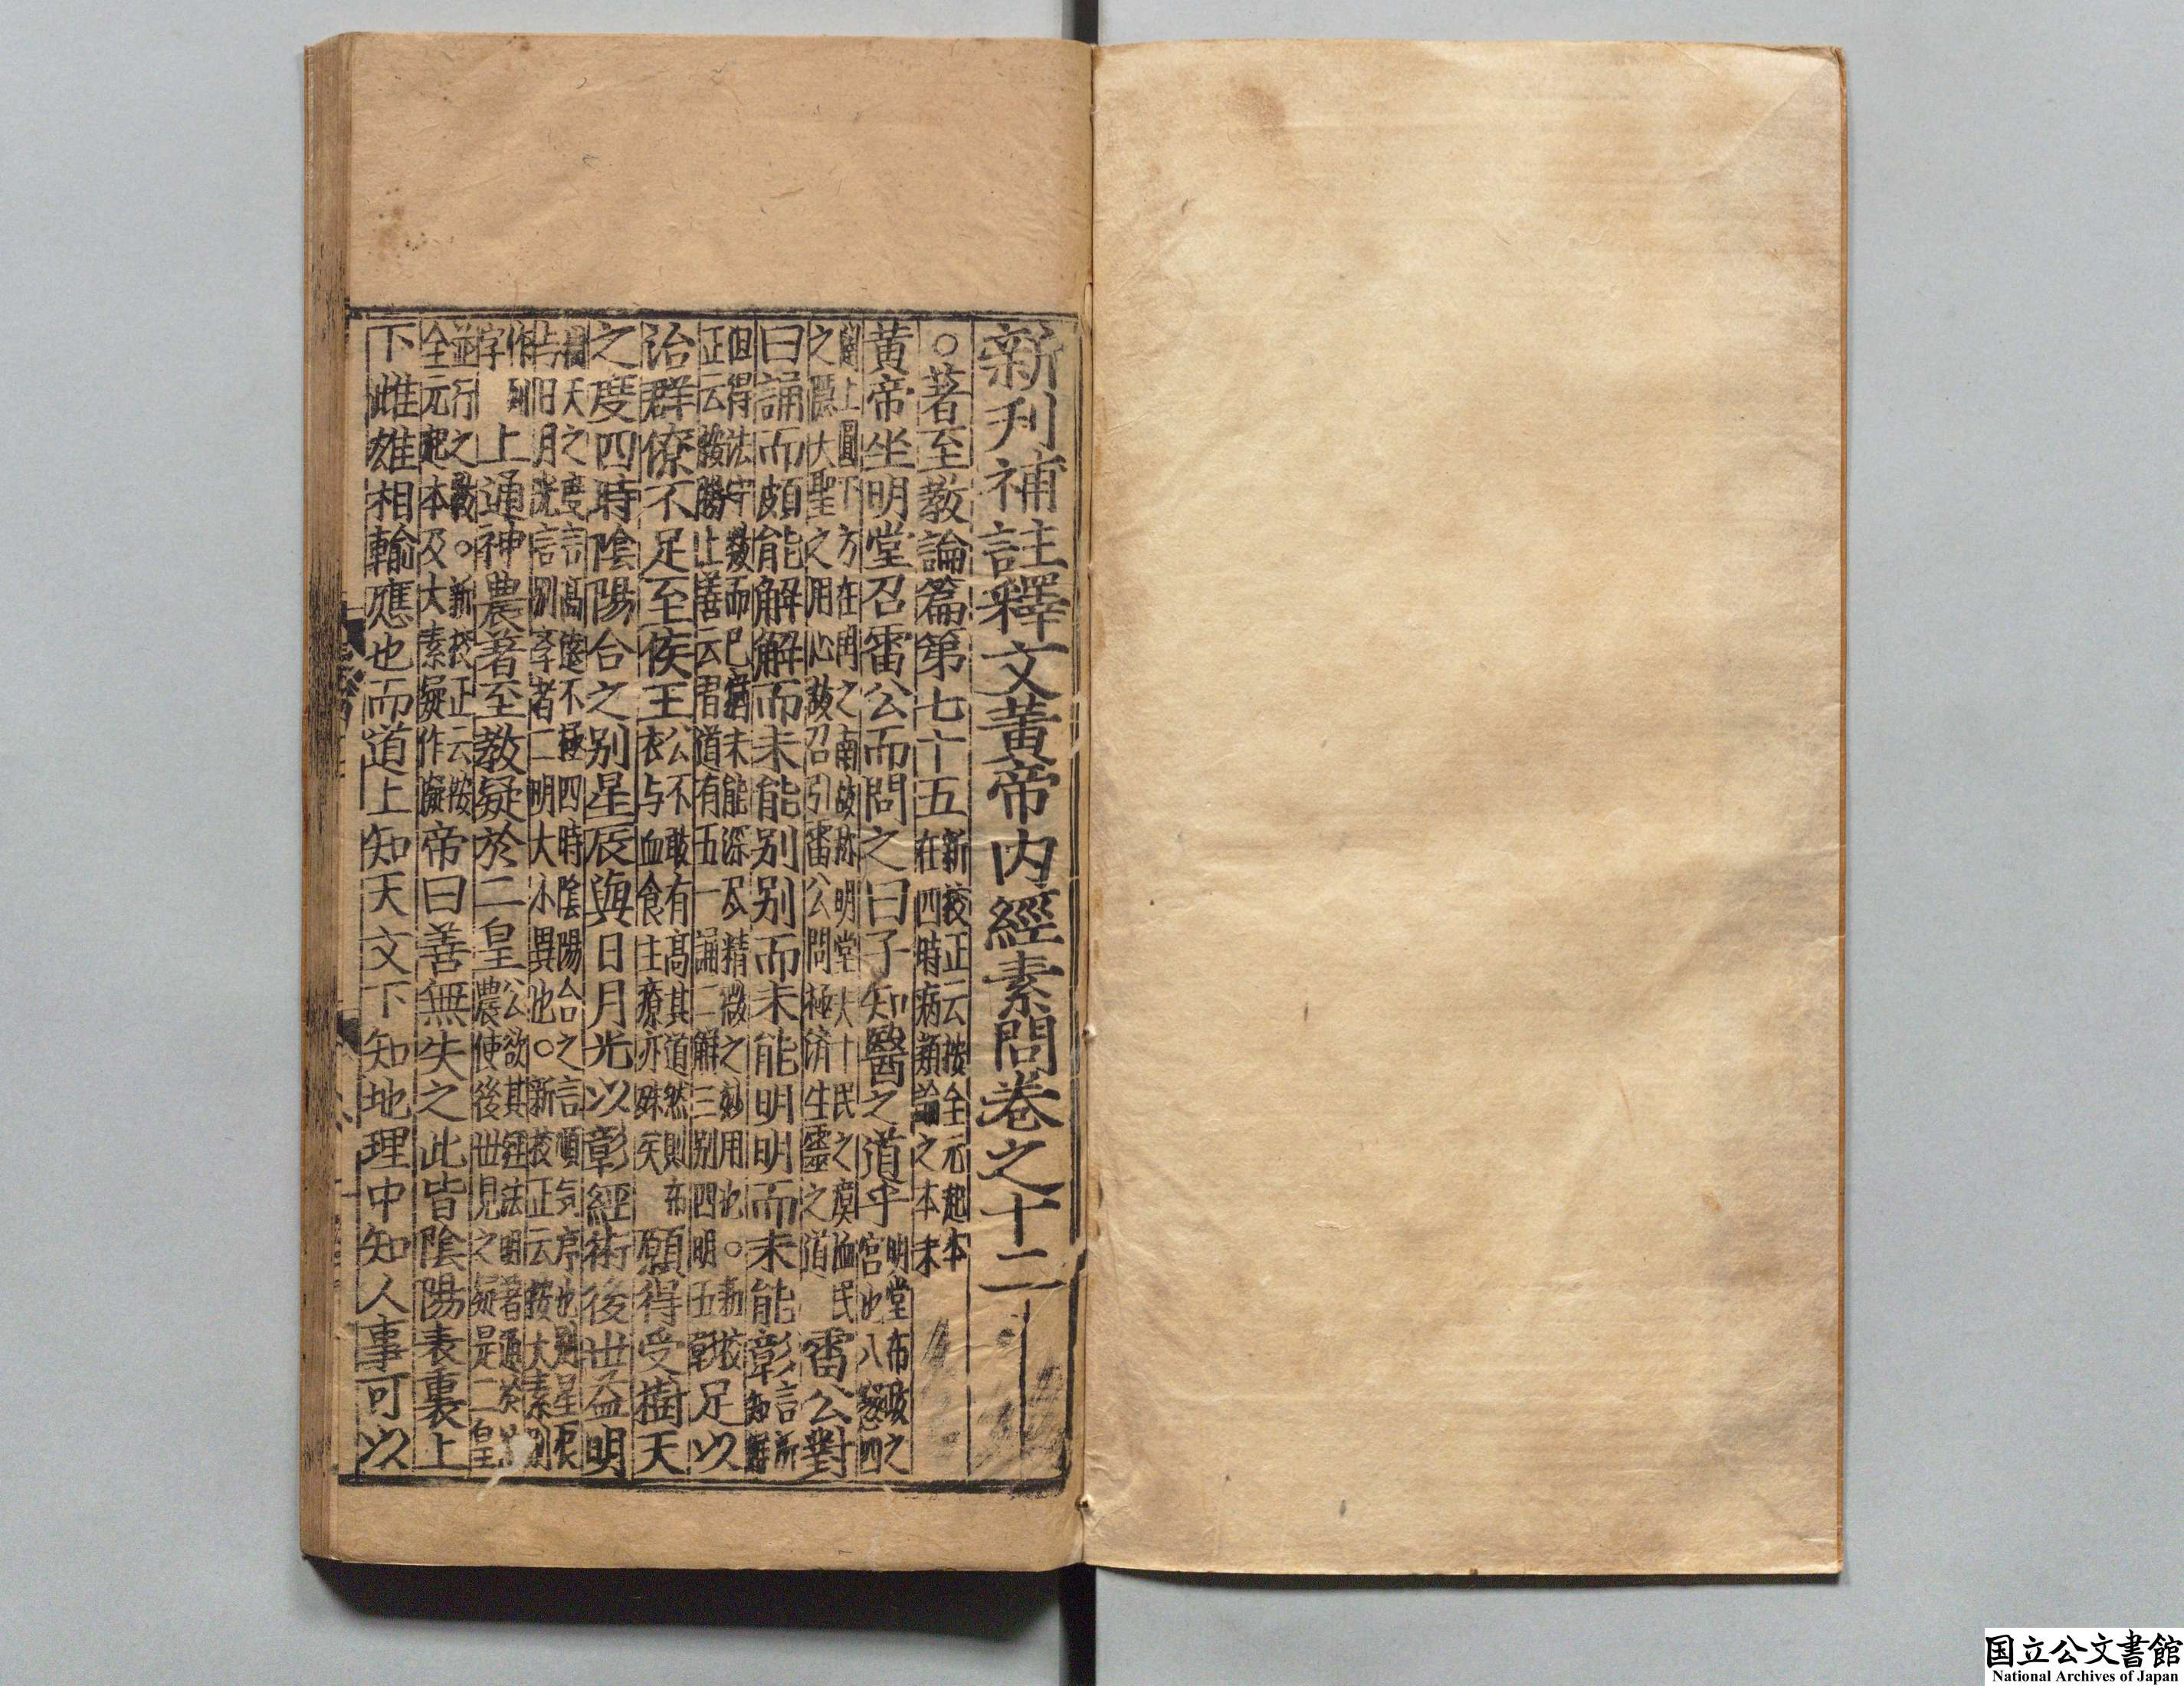 新刋補註釋文黃帝内經素問卷之十二
○著至教論篇第七十五 新校正云按全元起本在四時病類論之本末
黃帝坐明堂召雷公而問之曰子知醫之道乎 明堂布政之宮也八窻四
闥上圓下方在國之南故称明堂夫十民之瘼恤民之隱大聖之用心故召引雷公問極济生靈之道 雷公對
曰誦而頗能解解而未能别别而未能明明而未能彰 言所知解
但得法守數而已猶未能深尽精微之妙用也○新校正云按楊上善云習道有五一誦二解三别四明五彰 足以
治群僚不足至侯王 公不敢有高其道然則布衣与血食主療亦殊矣 願得受樹天
之度四時陰陽合之别星辰與日月光以彰經術後丗益明
樹天之度言高遠不極四時陰陽合之言順气序也别星辰与日月光言别学者二明大小異也○新校正云按太素别
作列字 上通神農著至教疑於二皇 公欲其經法明著通於神農使後丗見之疑是二皇
並行之教○新校正云按全元起本及大素疑作擬 帝曰善無失之此皆陰陽表裏上
下雌雄相輸應也而道上知天文下知地理中知人事可以
国立公文書館
National Archives of Japan